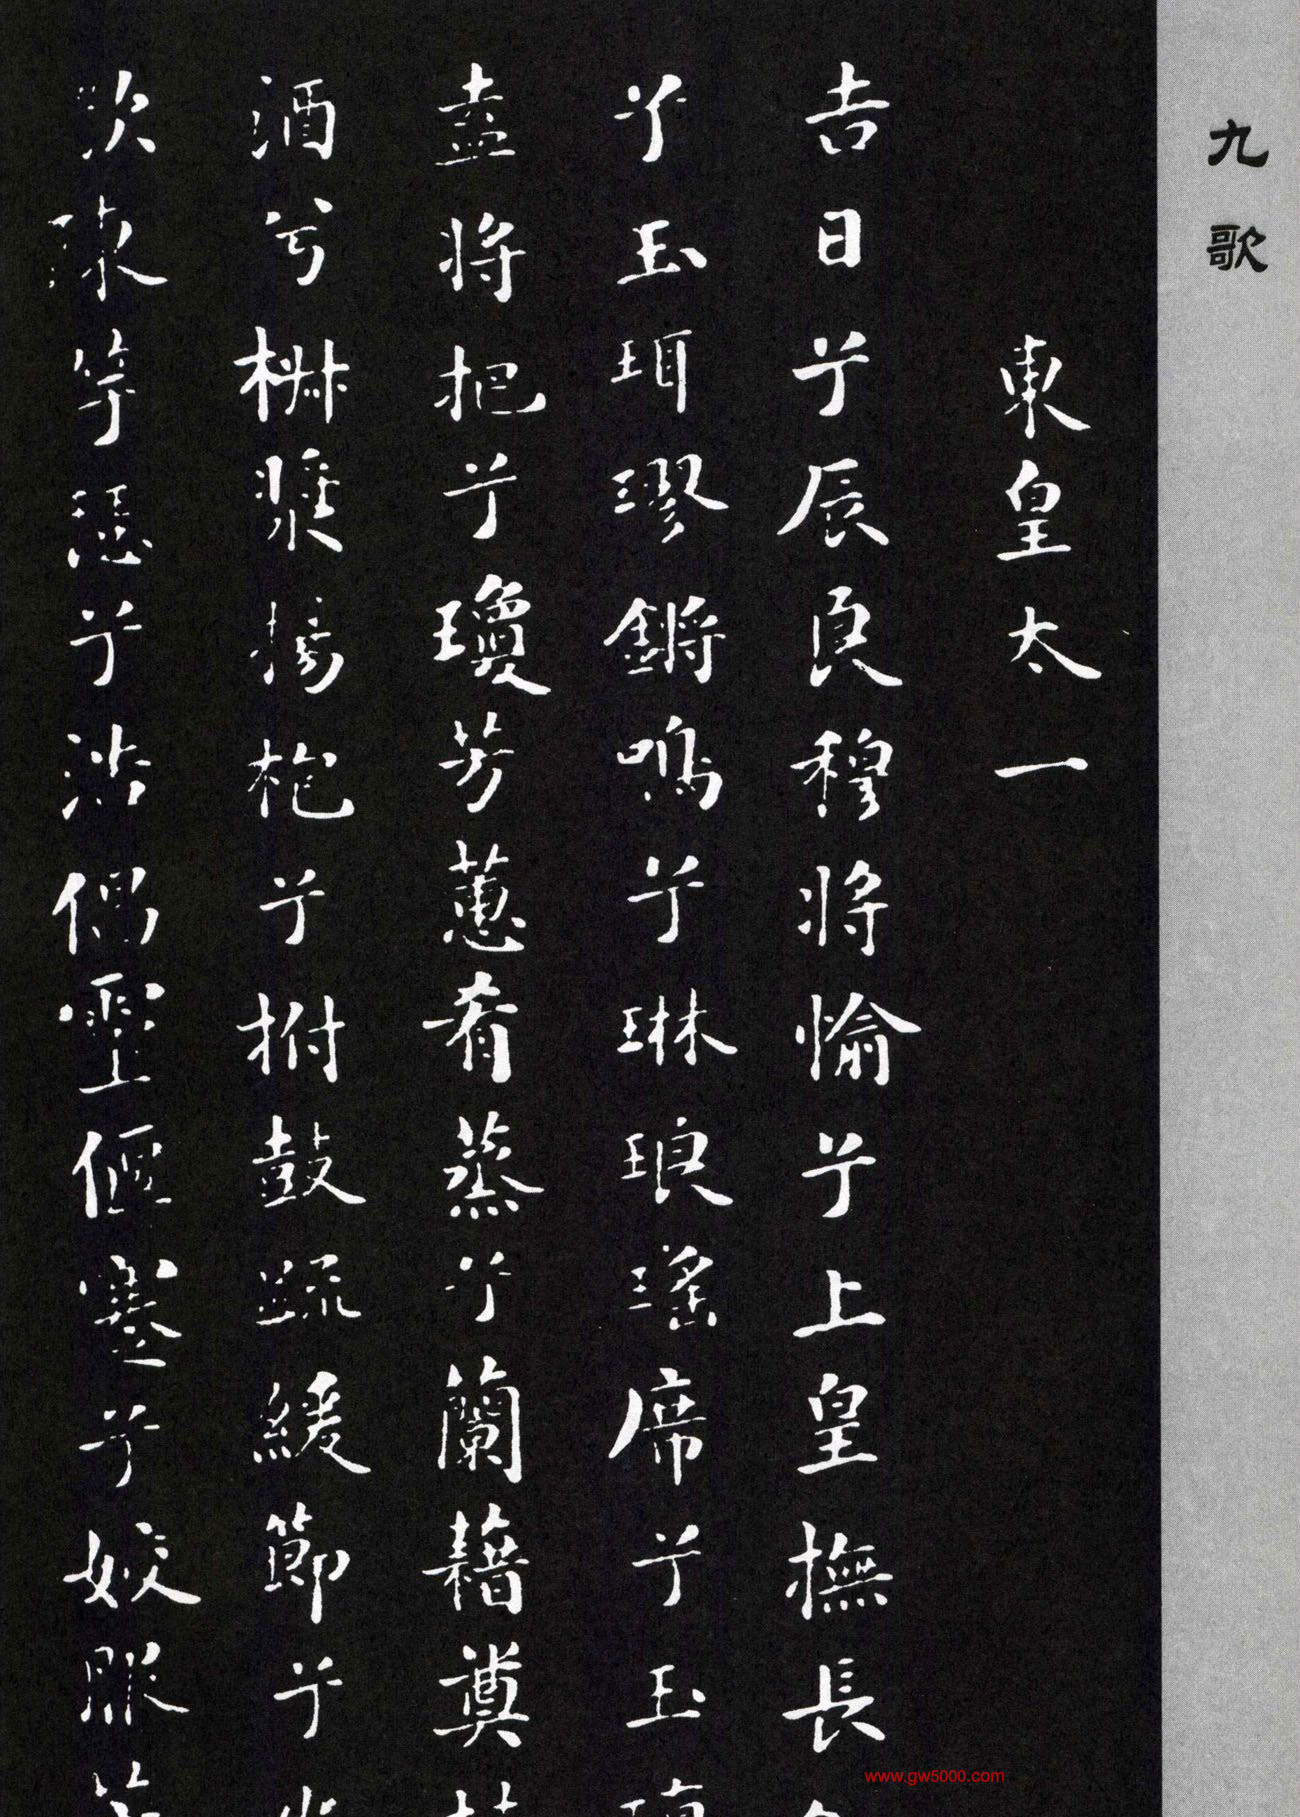 九歌
東皇太一
吉日兮辰良穆將愉兮上皇撫長
兮玉珥璆鏘鳴兮琳琅瑤席兮玉
盍將把兮瓊芳蕙肴蒸兮蘭藉奠
酒兮椒漿揚枹兮拊鼓疏緩節兮
陳竽瑟兮浩倡靈偃蹇兮姣服
www.gw5000.com